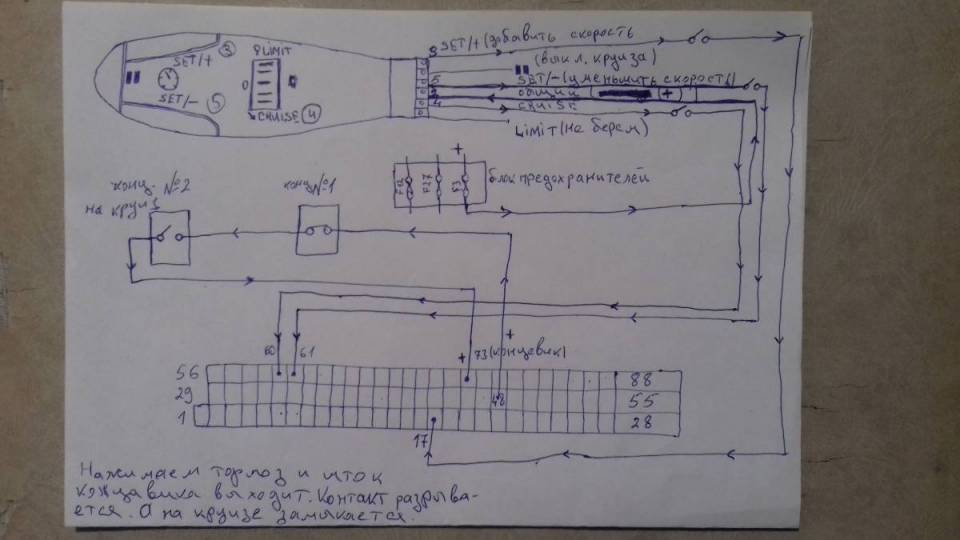 3 SET/+ (добавить скорость
(выкл. круиза)
5 SET/- (уменьшить скорость)
общий +
4 CRUISE
Limit (не берем)
SET/+ 3
LIMIT
SET/- 5
CRUISE 4
+
F27 F3
блок предохранителей
конц. №2
на круиз
конц №1
60 61
+ 73 (концевик)
+
56 88
29 48 55
1 28
17
Нажимаем тормоз и шток
концавика выходит. Контакт разрыва-
ется. А на круизе замыкается.